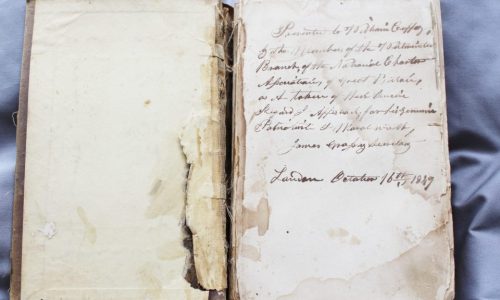 Presented to William Cuffay
By the Members of the Westminster
Branch, of the National Charter
Association, of Great Britain,
as A token of their Sincere
Regard & Approval, for his genuine
Patriotism & Moral worth,
James Grassby Secretary
London October 16th, 1849